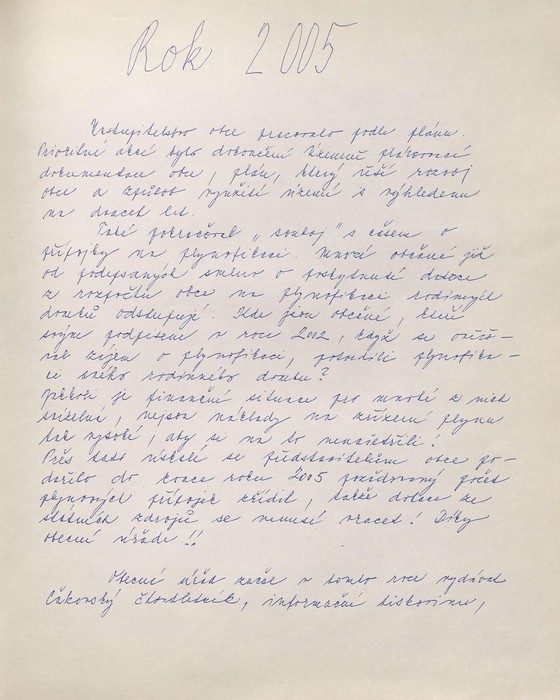 Rok 2005
Zastupitelstvo obce pracovalo podle plánu.
Prioritní akcí bylo dokončení územně plánovací
dokumentace obce, plán, který řeší rozvoj
obce a způsob využití území s výhledem
na dvacet let.
Také pokračoval „souboj" s časem o
přípojky na plynofikaci. Mnozí občané již
od podepsaných smluv o poskytnutí dotace
z rozpočtu obce na plynofikaci rodinných
domků odstupují. Kde jsou občané, kteří
svým podpisem v roce 2002, když se ověřo-
val zájem o plynofikaci, potvrdili plynofika-
ci svého rodinného domku?
Jakkoli je finanční situace pro mnohé z nich
svízelná, nejsou náklady na zřízení plynu
tak vysoké, aby si na to neušetřili!
Přes tato úskalí se představitelům obce po-
dařilo do konce roku 2005 požadovaný počet
plynových přípojek zřídit, takže dotace ze
státních zdrojů se nemusí vracet! Díky
obecní úřade!!
Obecní úřad začal v tomto roce vydávat
Čákovský čtvrtletník, informační tiskovinu,